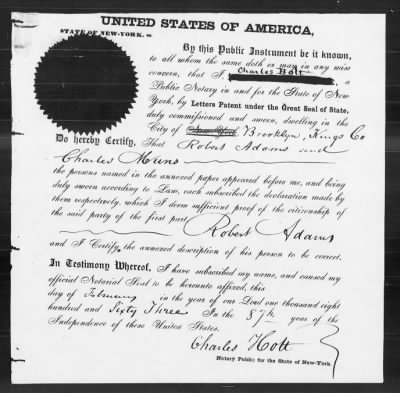 UNITED STATES OF AMERICA,
STATE OF NEW-YORK, ss.
By this Public Instrument be it known,
to all whom the same doth or may in any wise
concern, that I, Charles Hott a
Public Notary in and for the State of New
York, by Letters Patent under the Great Seal of State,
duly commissioned and sworn, dwelling in the
City of New York Brooklyn, Kings Co
Do hereby Certify, That Robert Adams and
Charles Muns
the persons named in the annexed paper appeared before me, and being
duly sworn according to Law, each subscribed the declaration made by
them respectively, which I deem sufficient proof of the citizenship of
the said party of the first part
Robert Adams
and I Certify the annexed description of his person to be correct.
In Testimony Whereof, I have subscribed my name, and caused my
official Notarial Seal to be hereunto affixed, this
day of February in the year of our Lord one thousand eight
hundred and Sixty Three In the 87th year of the
Independence of these United States.
Charles Hott
Notary Public for the State of New-York